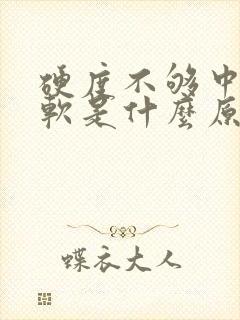 硬度不够中
軟是什麼原
蝶衣大人